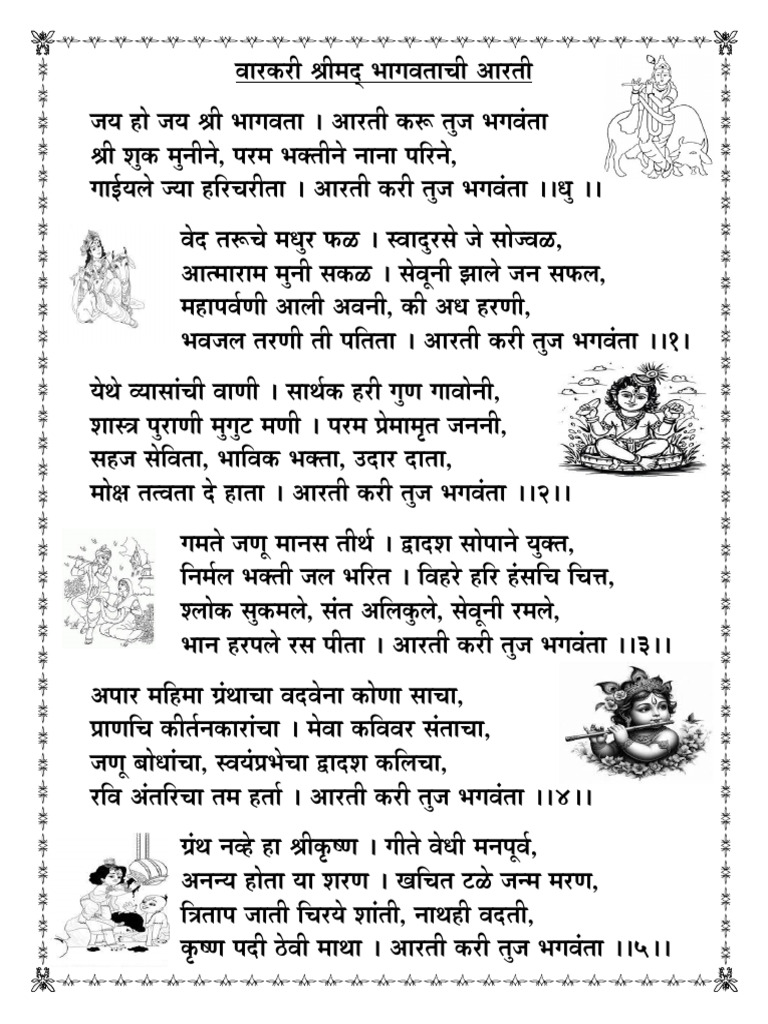 वारकरी श्रीमद् भागवताची आरती
जय हो जय श्री भागवता । आरती करू तुज भगवंता
श्री शुक मुनीने, परम भक्तीने नाना परिने,
गाईयले ज्या हरिचरीता । आरती करी तुज भगवंता ।।धु ।।
वेद तरूचे मधुर फळ । स्वादुरसे जे सोज्वळ,
आत्माराम मुनी सकळ । सेवूनी झाले जन सफल,
महापर्वणी आली अवनी, की अध हरणी,
भवजल तरणी ती पतिता । आरती करी तुज भगवंता ।।१।
येथे व्यासांची वाणी । सार्थक हरी गुण गावोनी,
शास्त्र पुराणी मुगुट मणी । परम प्रेमामृत जननी,
सहज सेविता, भाविक भक्ता, उदार दाता,
मोक्ष तत्वता दे हाता । आरती करी तुज भगवंता ।।२।।
गमते जणू मानस तीर्थ । द्वादश सोपाने युक्त,
निर्मल भक्ती जल भरित । विहरे हरि हंसचि चित्त,
श्लोक सुकमले, संत अलिकुले, सेवूनी रमले,
भान हरपले रस पीता । आरती करी तुज भगवंता ।।३।।
अपार महिमा ग्रंथाचा वदवेना कोणा साचा,
प्राणचि कीर्तनकारांचा । मेवा कविवर संताचा,
जणू बोधांचा, स्वयंप्रभेचा द्वादश कलिचा,
रवि अंतरिचा तम हर्ता । आरती करी तुज भगवंता ।।४।।
ग्रंथ नव्हे हा श्रीकृष्ण । गीते वेधी मनपूर्व,
अनन्य होता या शरण । खचित टळे जन्म मरण,
त्रिताप जाती चिरये शांती, नाथही वदती,
कृष्ण पदी ठेवी माथा । आरती करी तुज भगवंता ।।५।।